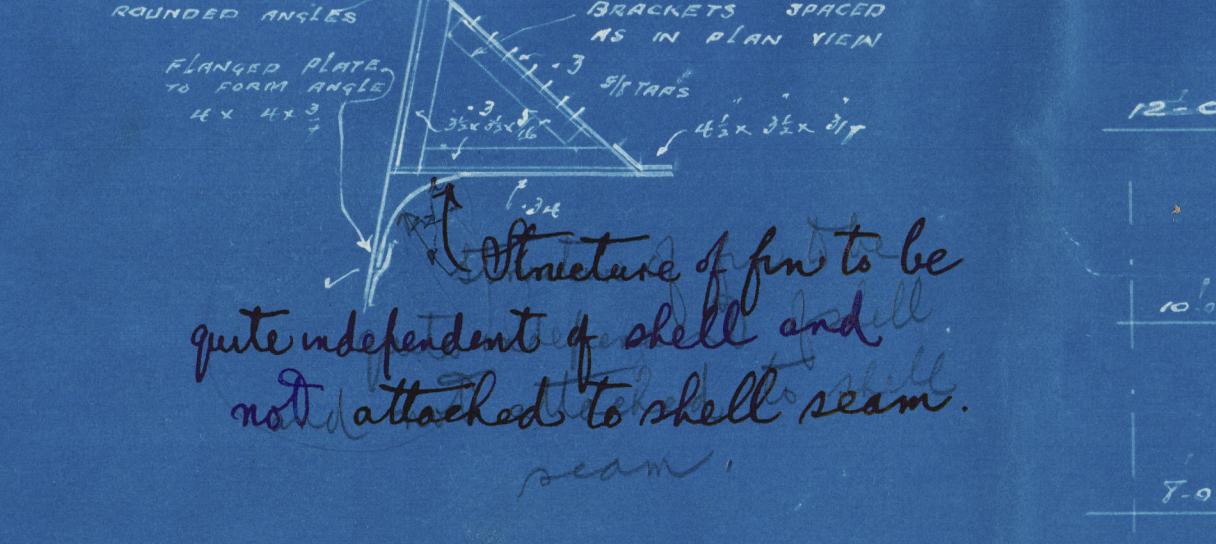 ROUNDED ANGLES
BRACKETS SPACED
AS IN PLAN VIEW
FLANGED PLATE
TO FORM ANGLE
4 x 4 x 3/7
.3
5/8 TAPS
.3
3½ x 3½ x 5/16
4½ x 3½ x 3/7
12-0
.34
Structure of fin to be
quite independent of shell and
not attached to shell seam.
seam.
10-0
8-0